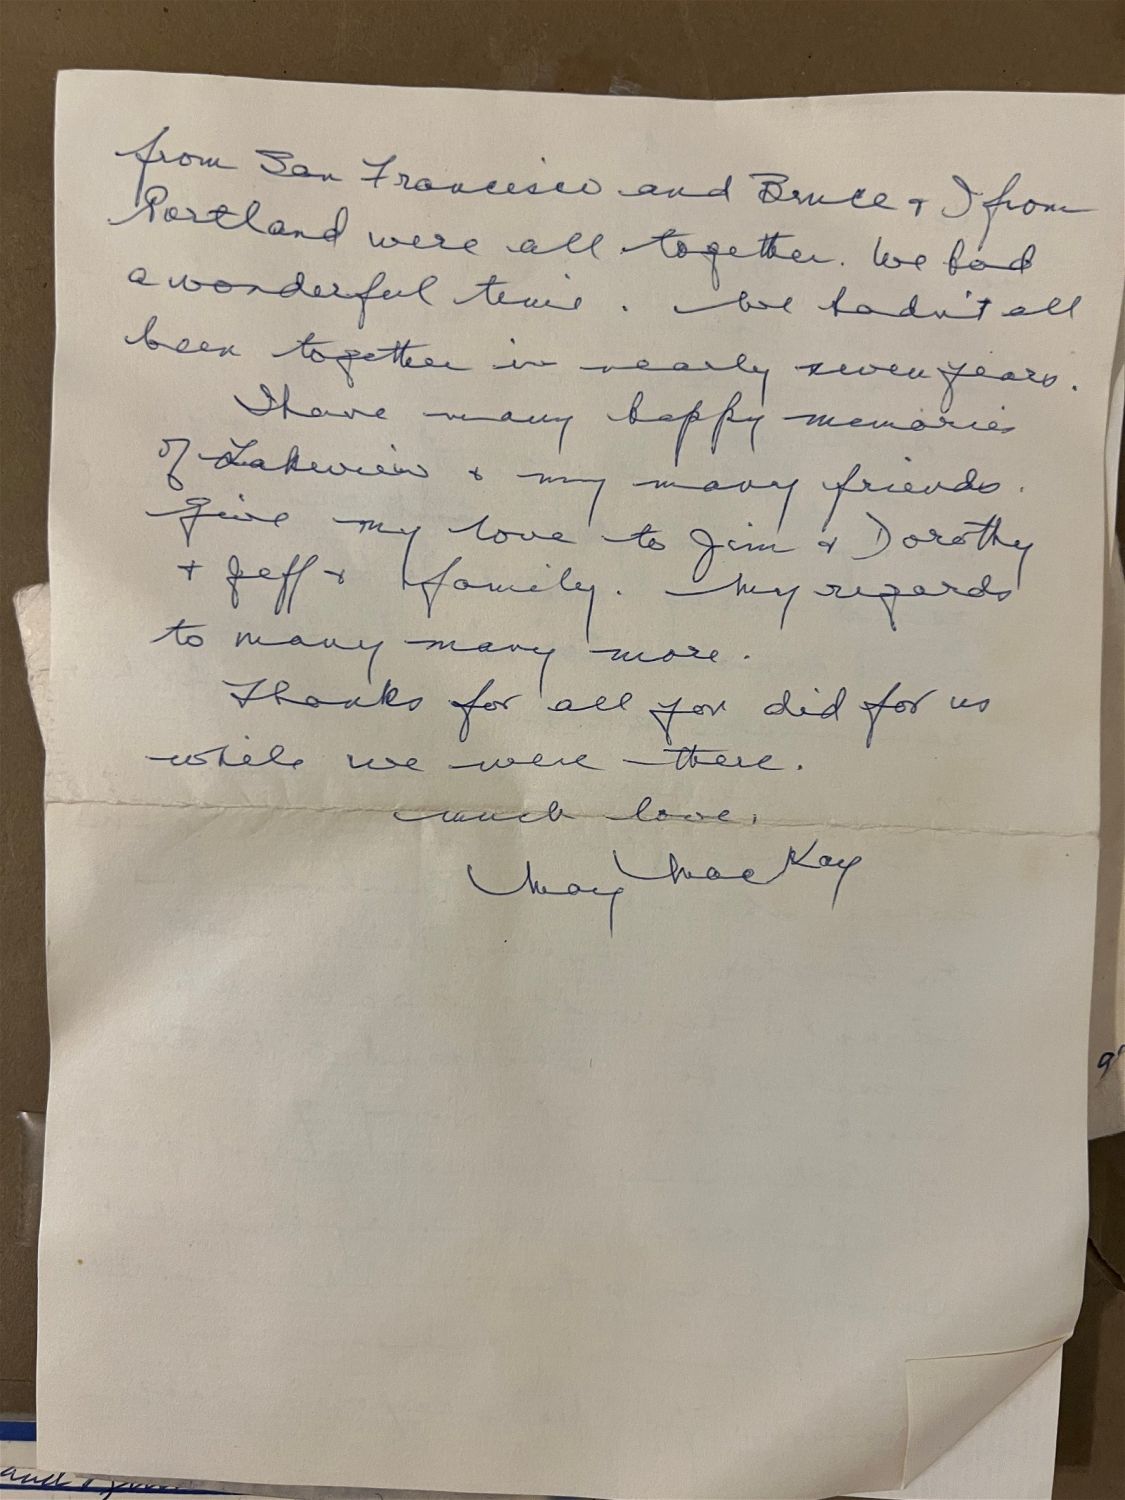 from San Francisco and Bruce & I from
Portland were all together. We had
a wonderful time. We hadn't all
been together in nearly seven years.
I have many happy memories
of Lakeview & my many friends.
Give my love to Jim & Dorothy
& Jeff & family. My regards
to many many more.
Thanks for all you did for us
while we were there.
Much love,
May MacKay
and